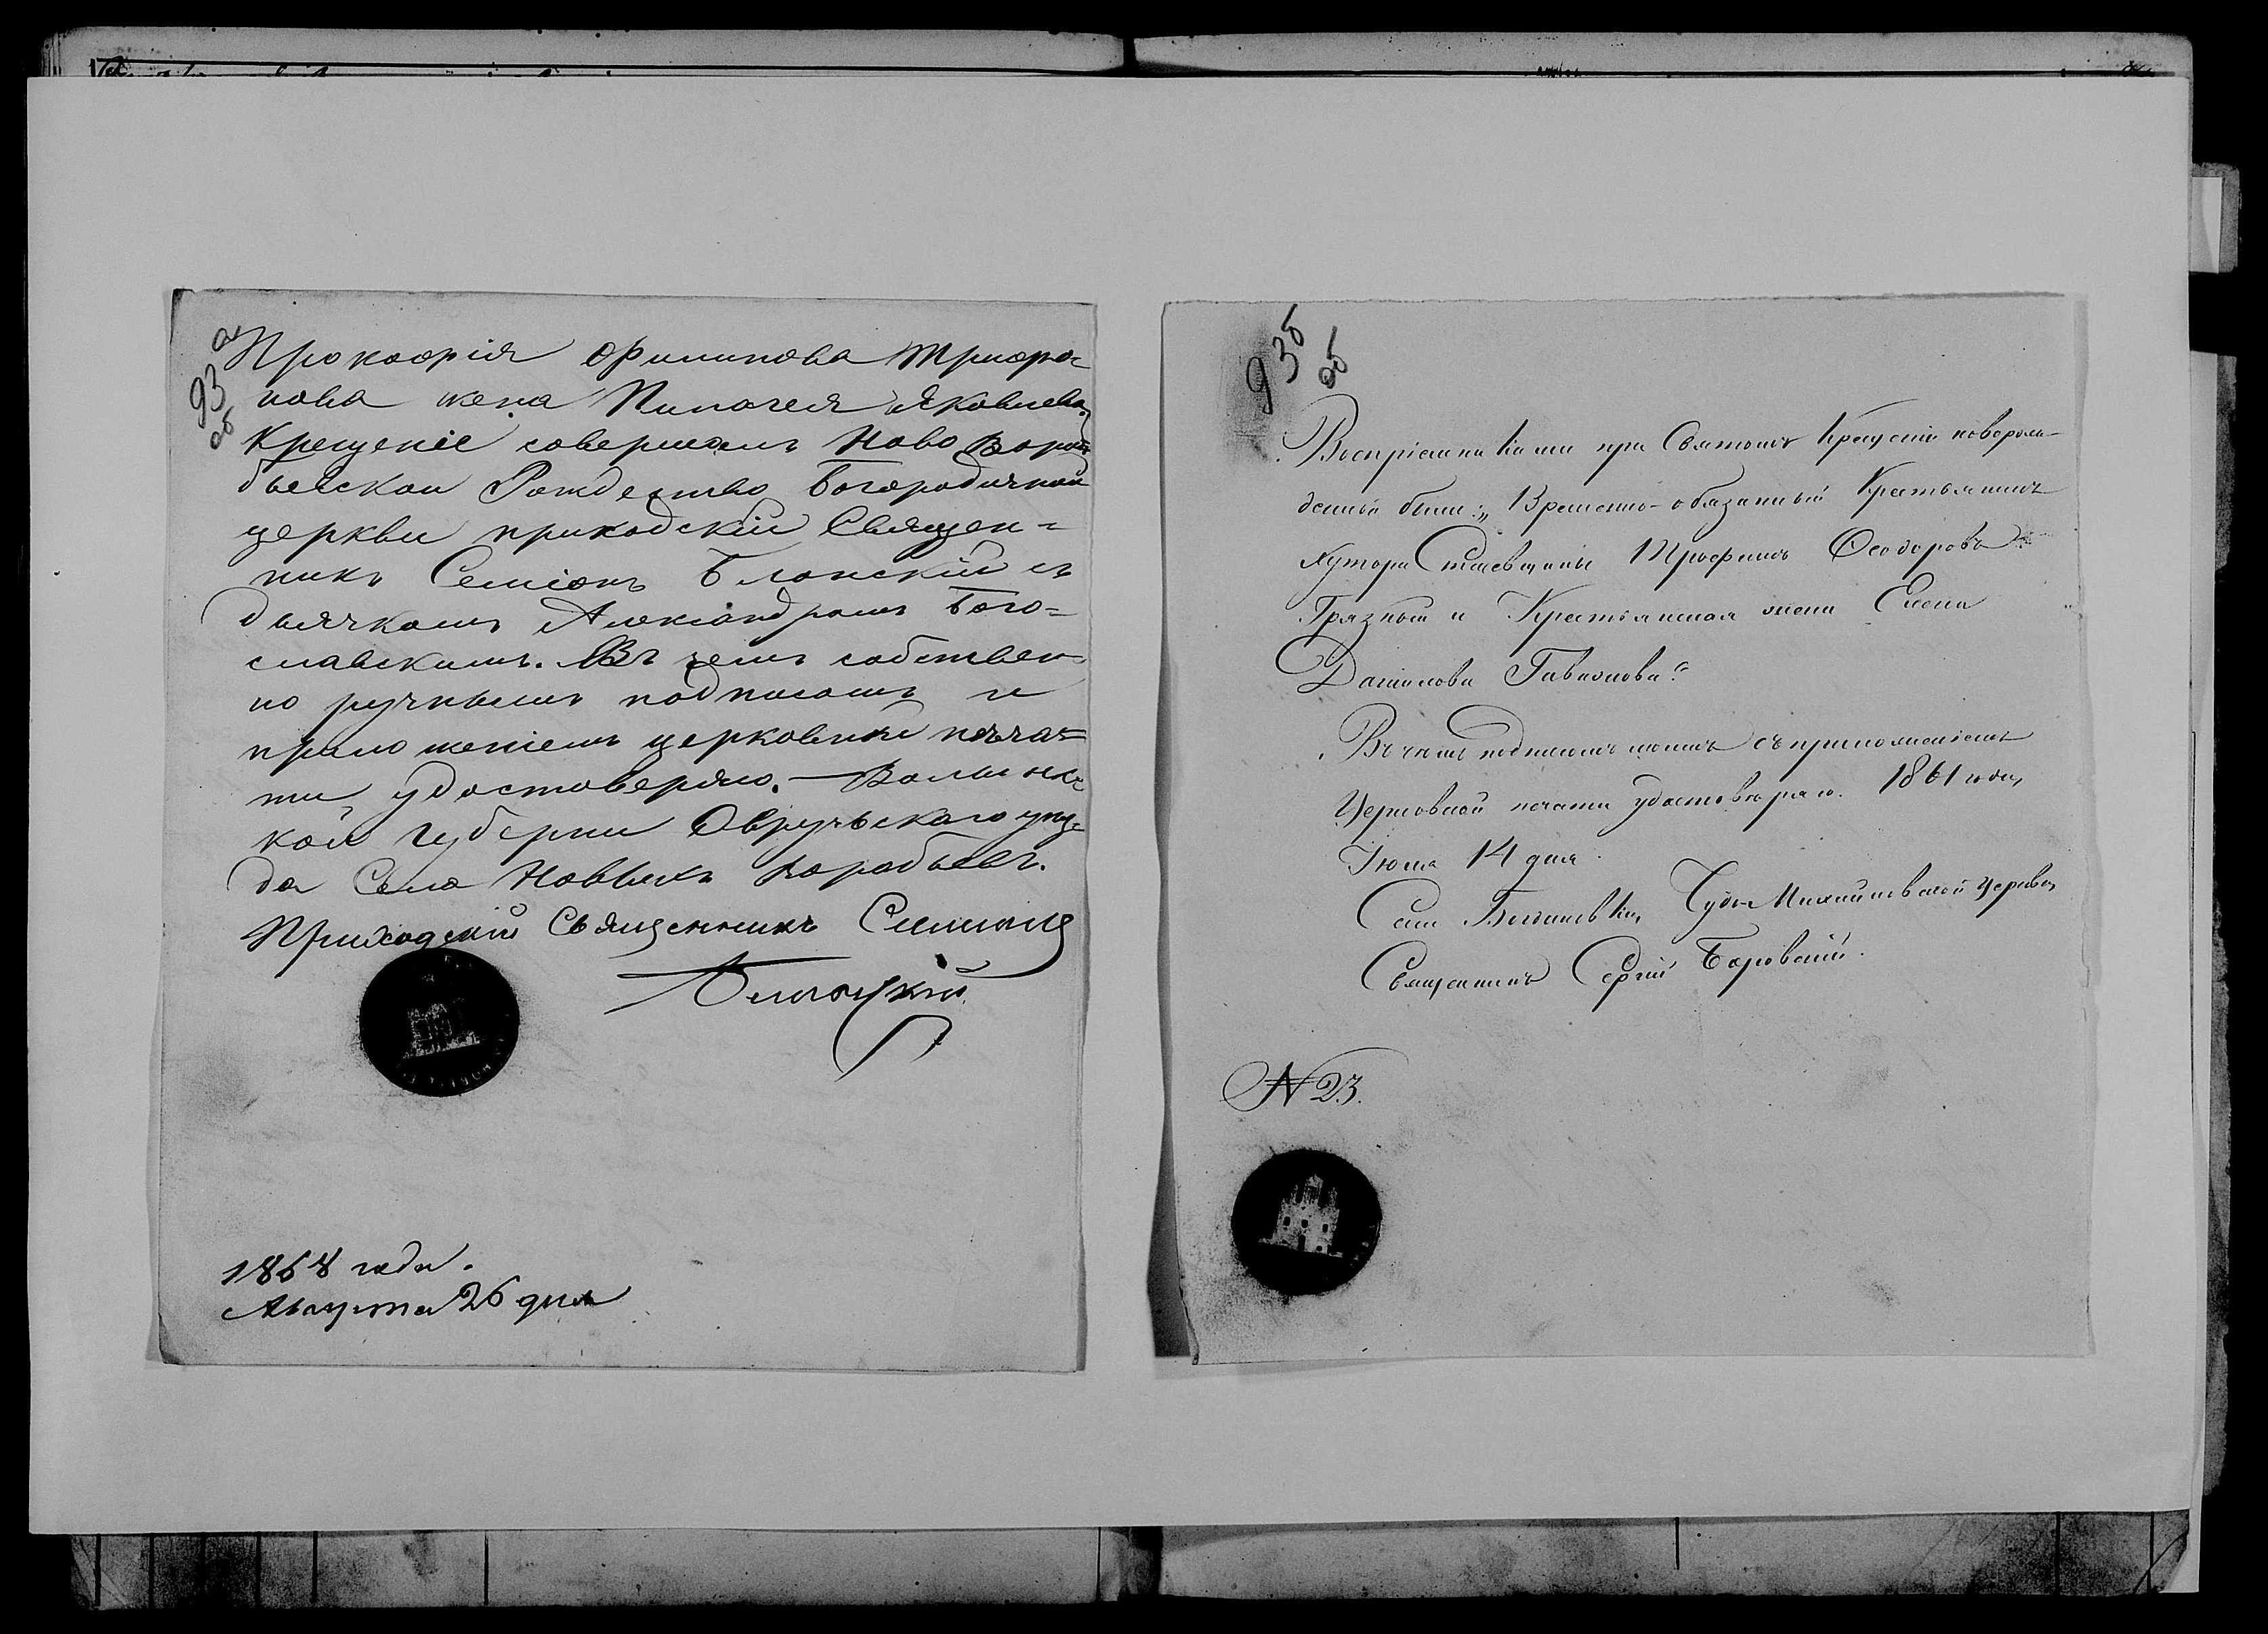 93 а
об
Прокофія Филипова Трифо=
нова жена Пилагея Яковлева,
Крещеніе совершалъ Ново Воро
бьевской Рождество Богородичной
церкви приходскій Священ=
никъ Семіонъ Блонскій съ
дьячкомъ Александромъ Бого=
славскимъ. Въ чемъ собствен=
но ручнымъ подписомъ и
приложеніемъ церковной печа=
ти удостоверяю. — Волынс
кой губерни Овручьскаго уез=
да Села Новыхъ Воробьевъ.
Приходскій Священникъ Симіонъ
Блонскій
1868 года.
Августа 26 дня
93 б
об
Воспріемниками при Святомъ Крещеніи новорож-
денной были: „Временно-обязанный Крестьянинъ
Хутора Трофимъ Ѳеодоровъ
Грязный и Крестьянская жена Елена
Данилова
Въ чемъ подписомъ моимъ съ приложеніемъ
Церковной печати удостовѣряю. 1861 года,
Іюля 14 дня.
Села Чудо-Михайловской Церкви,
Священникъ Сергій Боровскій.
№ 23.